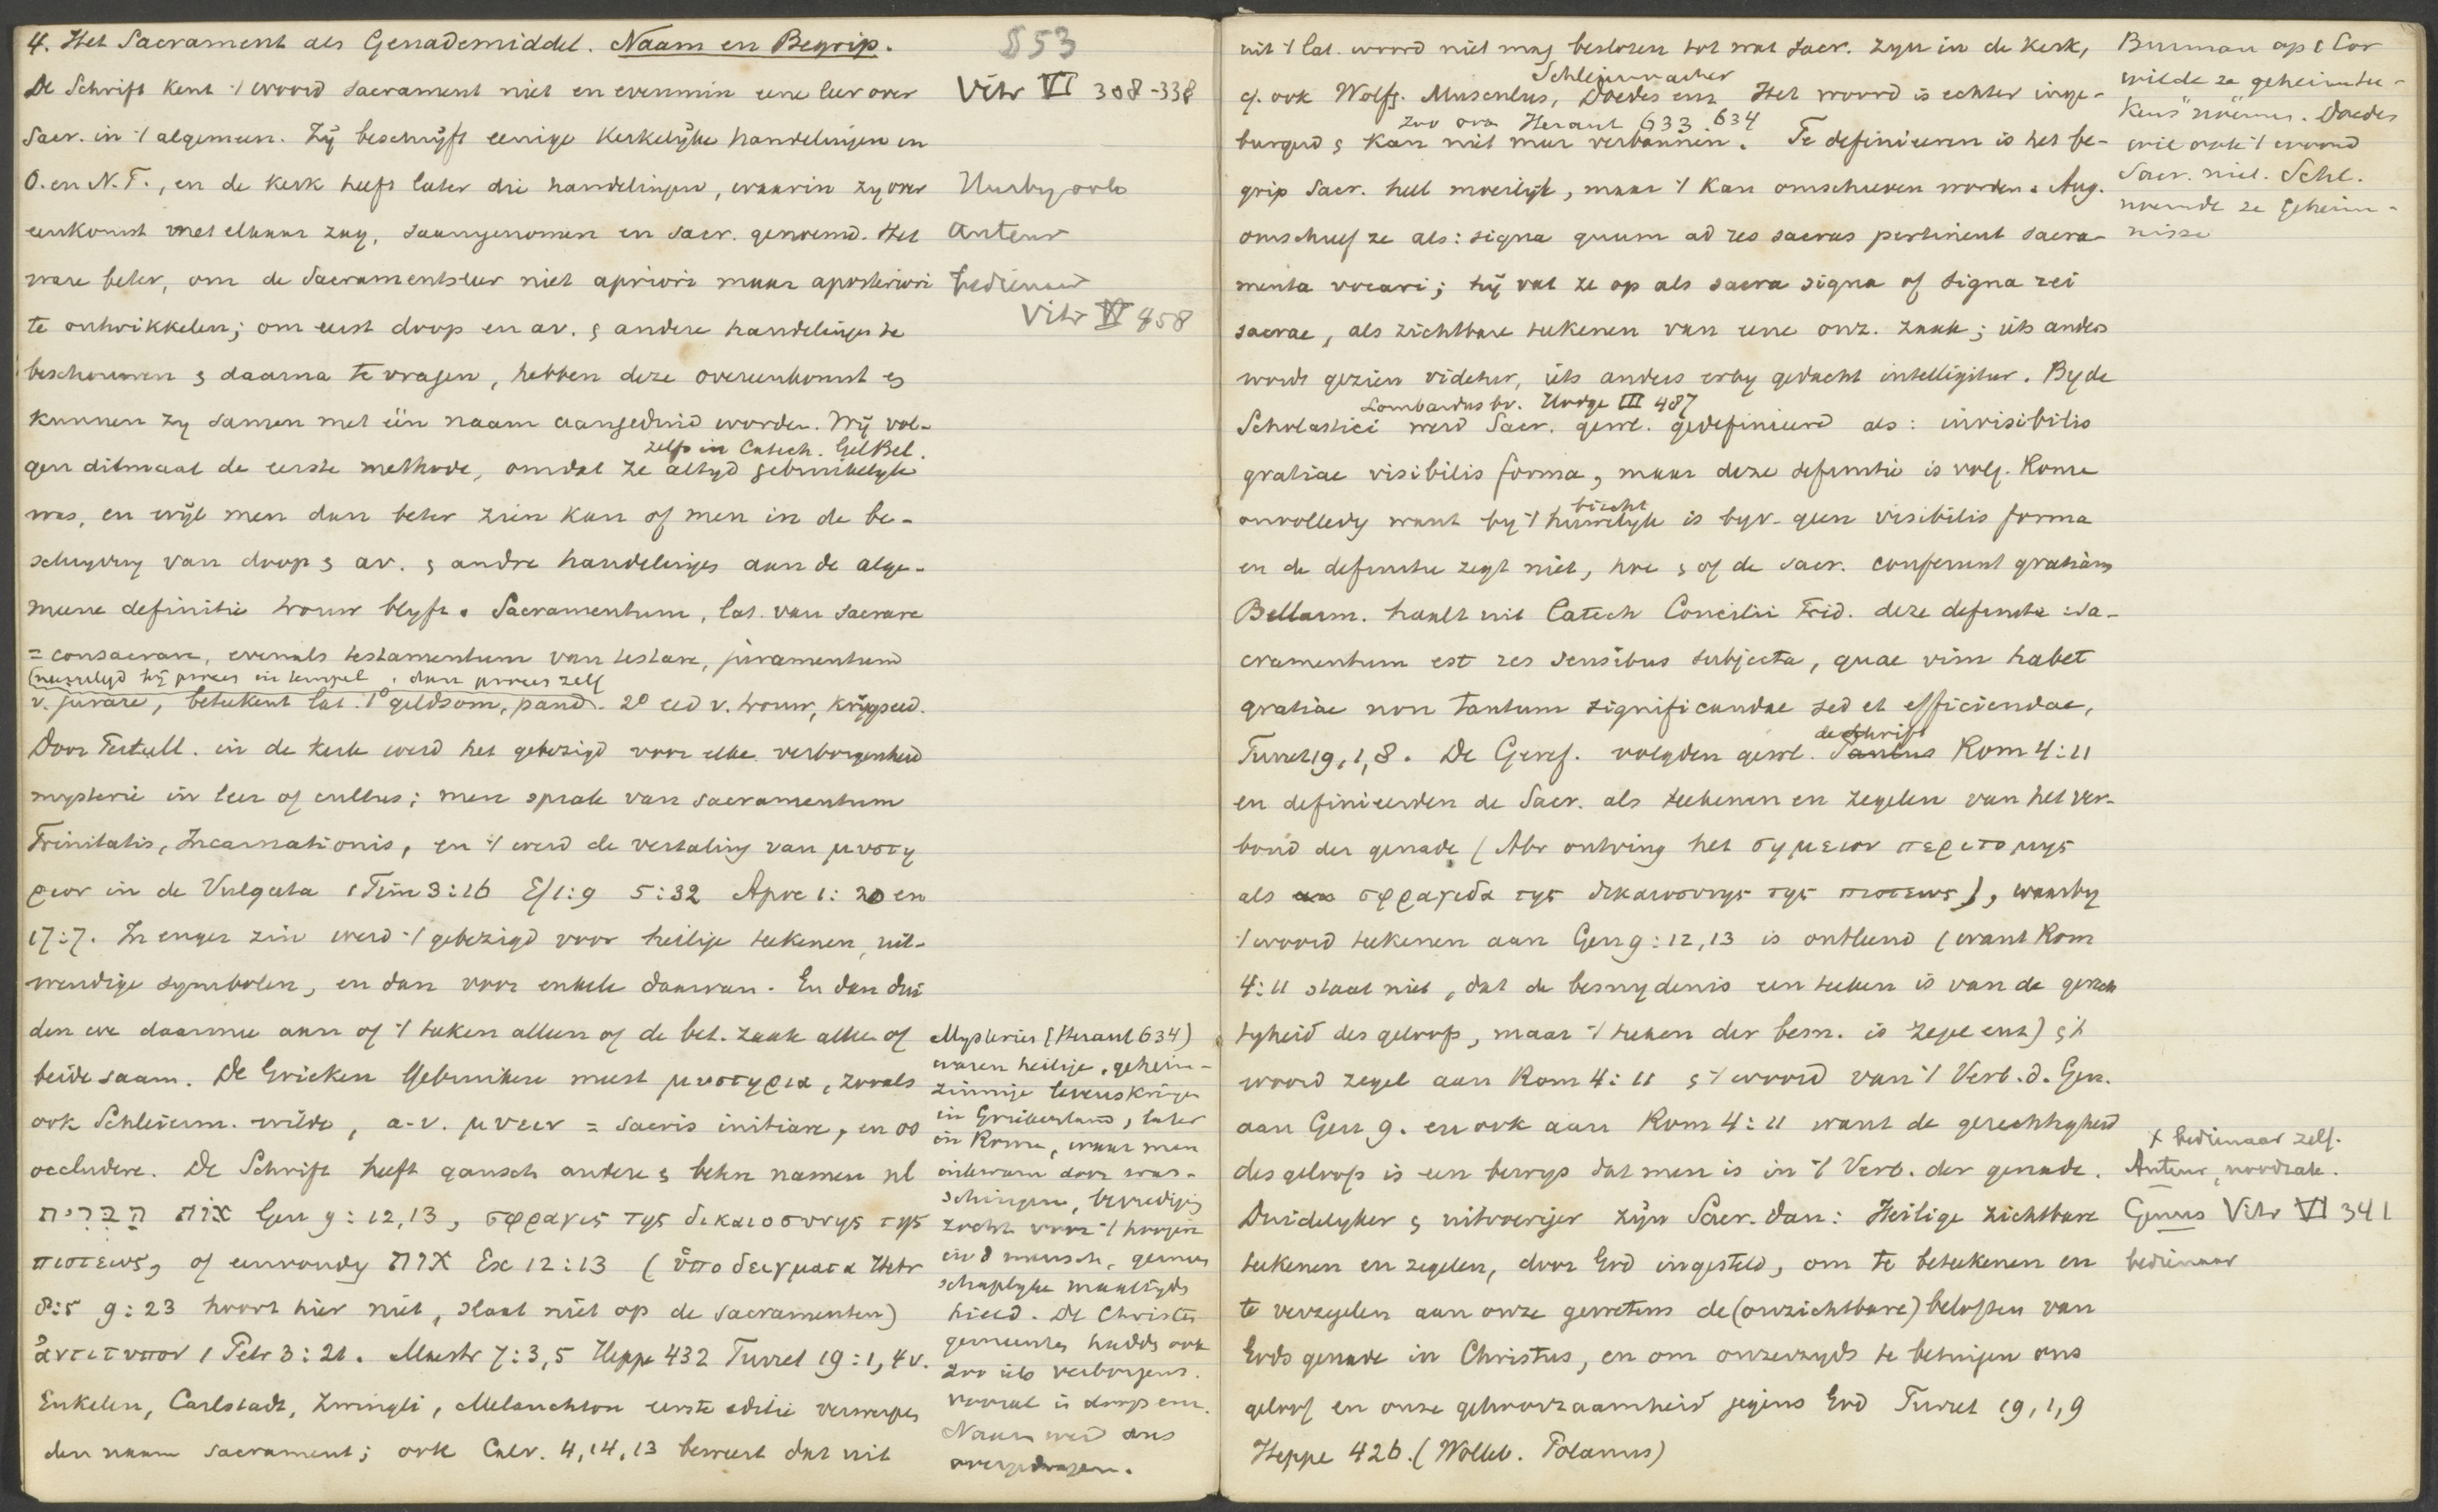 4. Het Sacrament als Genademiddel. Naam en Begrip.
De Schrift kent 't woord sacrament niet en evenmin eene leer over
Sacr. in 't algemeen. Zij beschrijft eenige Kerkelijke handelingen in
O. en N.T., en de Kerk heeft later die handelingen, waarin zy over
eenkomst met elkaar zag, saamgenomen en sacr. genoemd. Het
ware beter, om de Sacramentsleer niet apriori maar aposteriori
te ontwikkelen; om eerst doop en av. & andere handelingen te
beschouwen & daarna te vragen, hebben deze overeenkomst &
kunnen zy samen met één naam aangeduid worden. Wij vol-
zelfs in Catech. Gel Bel.
gen ditmaal de eerste methode, omdat ze altyd gebruikelyk
was, en wijl men dan beter zien kan of men in de be-
schryving van doop & av. & andre handelingen aan de alge-
meene definitie trouw blyft. Sacramentum, lat. van sacrare
= consacrare, evenals testamentum van testare, juramentum
(neergelegd bij proces in tempel, dan proces zelf
v. jurare, beteekent lat. 1° geldsom, pand. 2° eed v. trouw, krijgseed.
Door Tertull. in de Kerk werd het gebezigd voor elke verborgenheid
mysterie in leer of cultus; men sprak van sacramentum
Trinitatis, Incarnationis, en 't werd de vertaling van μυστη
ριον in de Vulgata 1 Tim 3:16 Ef 1:9 5:32 Apoc 1:20 en
17:7. In enger zin werd 't gebezigd voor heilige teekenen, uit-
wendige symbolen, en dan voor enkele daarvan. En dan dui
den we daarmee aan of 't teken alleen of de bet. zaak alleen of
beide saam. De Grieken gebruiken meest μυστηρια, zooals
ook Schleierm. wilde, a.v. μυειν = sacris initiare, en oo
occludere. De Schrift heeft gansch andere & beter namen nl
אות הברית Gen 9:12,13, σφραγις της δικαιοσυνης της
πιστεως, of eenvoudig אות Ex 12:13 (ὑποδειγματα Hebr
8:5 9:23 hoort hier niet, slaat niet op de sacramenten)
ἀντιτυπον 1 Petr 3:21. Maestr 7:3,5 Heppe 432 Turret 19:1,4 v.
Enkelen, Carlstadt, Zwingli, Melanchton eerste editie verwerpen
den naam sacrament; ook Calv. 4,14,13 beweert dat uit
§53
Vitr VI 308-338
Auteur
bedienaar
Vitr VI 458
Mysteries (Heraut 634)
waren heilige, geheim-
zinnige levenskringen
in Griekenland, later
in Rome, waar men
inkwam door was-
schingen, bevrediging
zocht voor 't hoogere
in d mensch, gemeen
schaplyke maaltyds
hield. De Christen
gemeentes hadden ook
zoo iets verborgens.
vooral in doop enz.
Naam werd dus
overgedragen.
uit 't lat. woord niet mag besloten tot wat sacr. zyn in de Kerk,
Schleiermacher
cf. ook Wolfg. Musculus, Doedes enz Het woord is echter inge-
zoo ook Heraut 633. 634
burgerd & kan niet meer verbannen. Te definieeren is het be-
grip Sacr. heel moeilyk, maar 't kan omschreven worden. Aug.
omschreef ze als: signa quum ad res sacras pertinent sacra-
menta vocari; hij vat ze op als sacra signa of signa rei
sacrae, als zichtbare teekenen van eene onz. zaak; iets anders
wordt gezien videtur, iets anders erby gedacht intelligitur. By de
Lombardus bv. Hodge III 487
Scholastici werd Sacr. gewl. gedefinieerd als: invisibilis
gratiae visibilis forma, maar deze definitie is volg. Rome
biecht
onvolledig want by 't huwelyk is byv. geen visibilis forma
en de definitie zegt niet, hoe & of de sacr. conferunt gratiam
Bellarm. haalt uit Catech Concilii Trid. deze definitie : sa-
cramentum est res sensibus subjecta, quae vim habet
gratiae non tantum significandae sed et efficiendae,
de Schrift
Turret 19,1,8. De Geref. volgden gewl. Paulus Rom 4:11
en definieerden de Sacr. als teekenen en zegelen van het ver-
bond der genade (Abr ontving het σημειον περιτομης
als σφραγιδα της δικαιοσυνης της πιστεως), waarby
't woord teekenen aan Gen 9:12,13 is ontleend (want Rom
4:11 staat niet, dat de besnydenis een teeken is van de gerech
tigheid des geloofs, maar 't teeken der besn. is zegel enz) & 't
woord zegel aan Rom 4:11 & 't woord van 't Verb. d. Gen.
aan Gen 9. en ook aan Rom 4:11 want de gerechtigheid
des geloofs is een bewys dat men is in 't Verb. der genade.
Duidelyker & uitvoeriger zijn Sacr. dan: Heilige zichtbare
teekenen en zegelen, door God ingesteld, om te beteekenen en
te verzegelen aan onze gewetens de (onzichtbare) beloften van
Gods genade in Christus, en om onzerzyds te betuigen ons
geloof en onze gehoorzaamheid jegens God Turret 19,1,9
Heppe 426. (Wolleb. Polanus)
Burman op 1 Cor
wilde ze geheimtee-
kens noemen. Doedes
wil ook 't woord
Sacr. niet. Schl.
noemde ze geheim-
nisse
+ bedienaar zelf.
Auteur, noodzak.
Genus Vitr VI 341
bedienaar